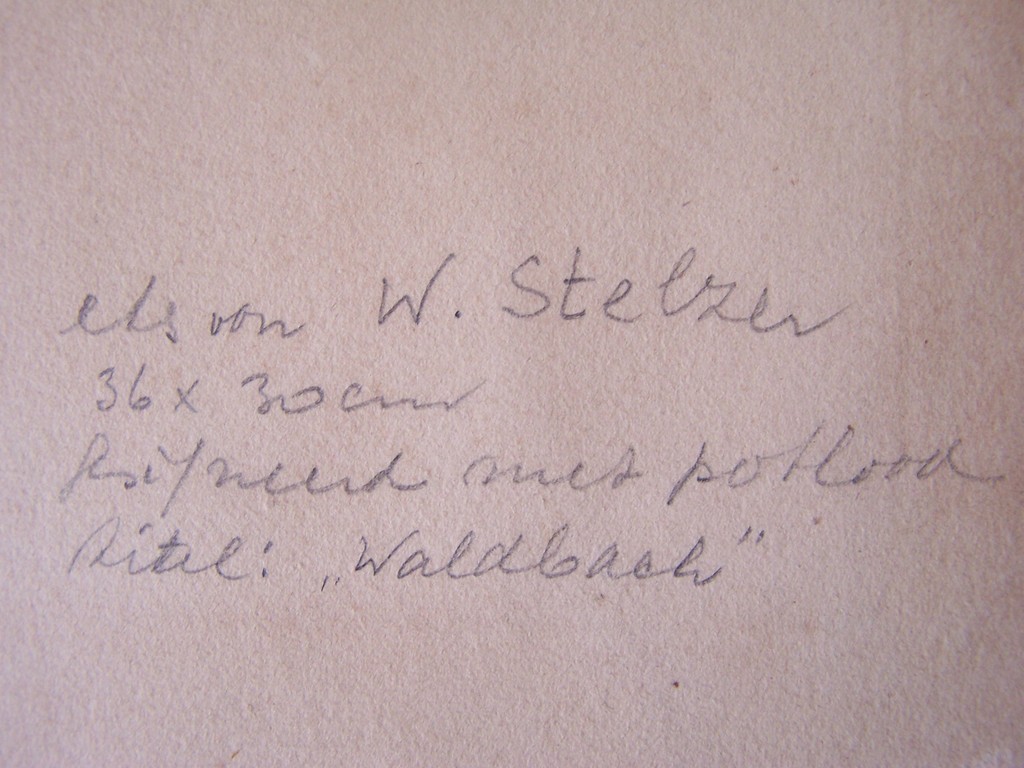 ets von W. Stelzer
36 x 30 cm
Gesigneerd met potlood
titel: „Waldbach"